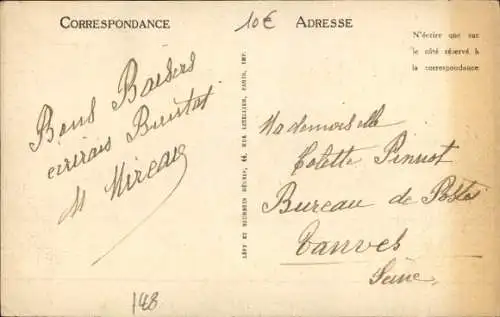 CORRESPONDANCE
10€
ADRESSE
N'écrire que sur
le côté réservé à
la correspondance
Bons Baisers
écrirais Bientôt
M Mireau
LÉVY ET NEURDEIN RÉUNIS, 44, RUE LETELLIER, PARIS, IMP.
Mademoiselle
Colette Pinnot
Bureau de Postes
Vanves
Seine
148